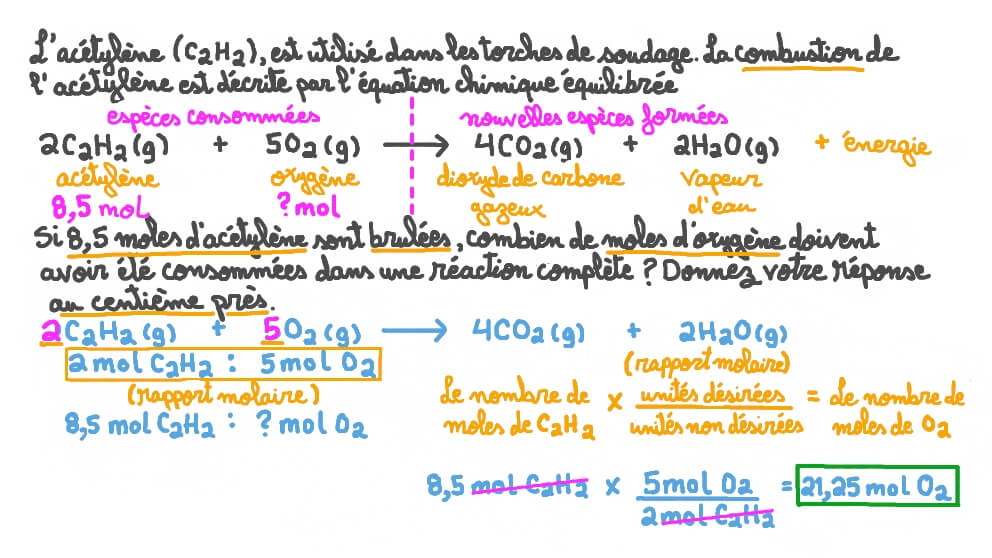 L'acétylène (C2H2), est utilisé dans les torches de soudage. La combustion de
l'acétylène est décrite par l'équation chimique équilibrée
espèces consommées nouvelles espèces formées
2C2H2(g) + 5O2(g) ⟶ 4CO2(g) + 2H2O(g) + énergie
acétylène oxygène dioxyde de carbone vapeur
gazeux d'eau
8,5 mol ? mol
Si 8,5 moles d'acétylène sont brulées, combien de moles d'oxygène doivent
avoir été consommées dans une réaction complète ? Donnez votre réponse
au centième près.
2C2H2(g) + 5O2(g) ⟶ 4CO2(g) + 2H2O(g)
2 mol C2H2 : 5 mol O2
(rapport molaire)
8,5 mol C2H2 : ? mol O2
(rapport molaire)
Le nombre de moles de C2H2 × unités désirées / unités non désirées = Le nombre de moles de O2
8,5 mol C2H2 × 5 mol O2 / 2 mol C2H2 = 21,25 mol O2